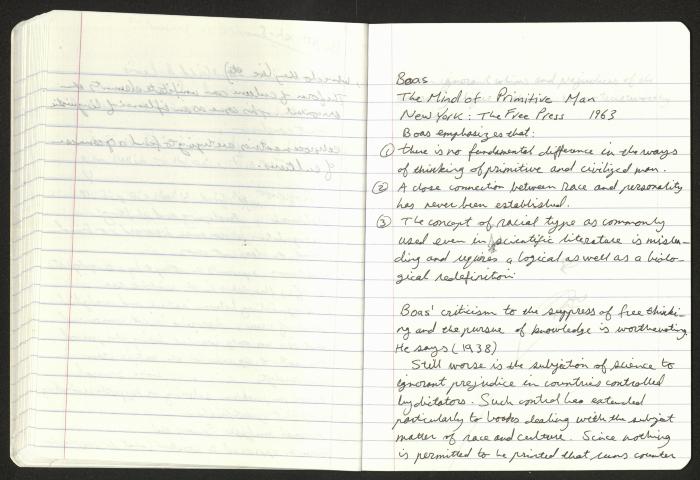 Boas
The Mind of Primitive Man
New York: The Free Press 1963
Boas emphasizes that:
① there is no fundamental difference in the ways
of thinking of primitive and civilized man.
② A close connection between race and personality
has never been established.
③ The concept of racial type as commonly
used even in scientific literature is mislea-
ding and requires a logical as well as a biolo-
gical redefinition.
Boas' criticism to the suppress of free thinki-
ng and the pursue of knowledge is worth noting.
He says (1938)
Still worse is the subjection of science to
ignorant prejudice in countries controlled
by dictators. Such control has extended
particularly to books dealing with the subject
matter of race and culture. Since nothing
is permitted to be printed that runs counter